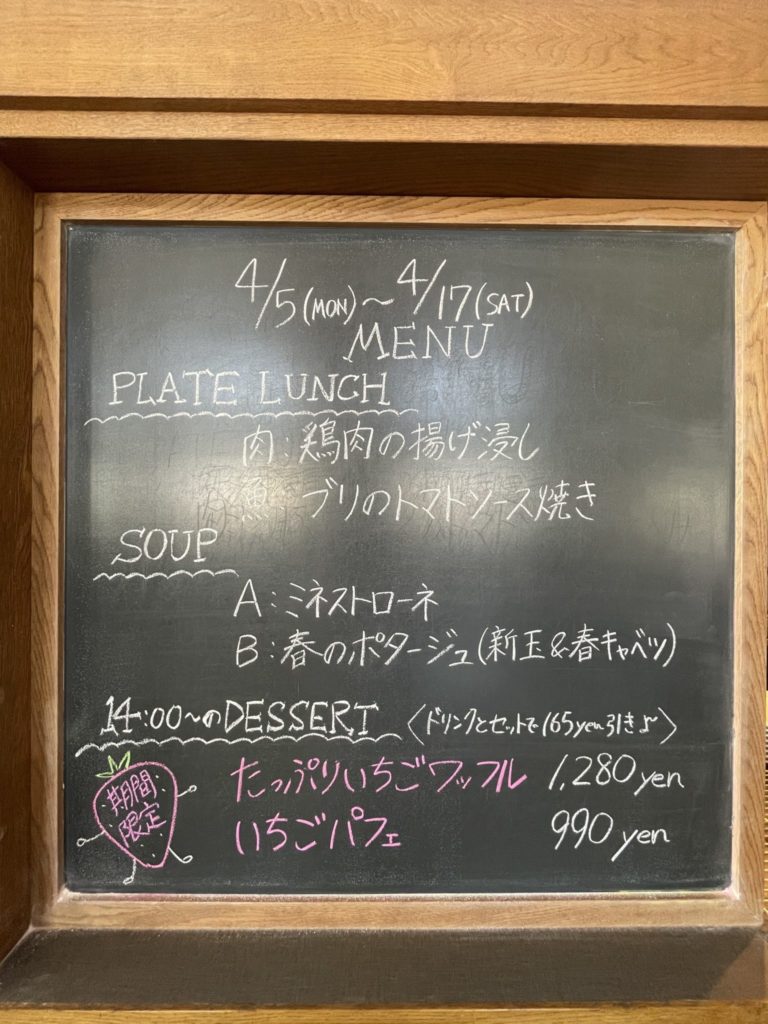 4/5(MON)~4/17(SAT)
MENU
PLATE LUNCH
肉:鶏肉の揚げ浸し
魚: ブリのトマトソース焼き
SOUP
A:ミネストローネ
B:春のポタージュ(新玉&春キャベツ)
14:00~のDESSERT 〈ドリンクとセットで165yen引き♪〉
期間
限定
たっぷりいちごワッフル 1,280yen
いちごパフェ 990yen